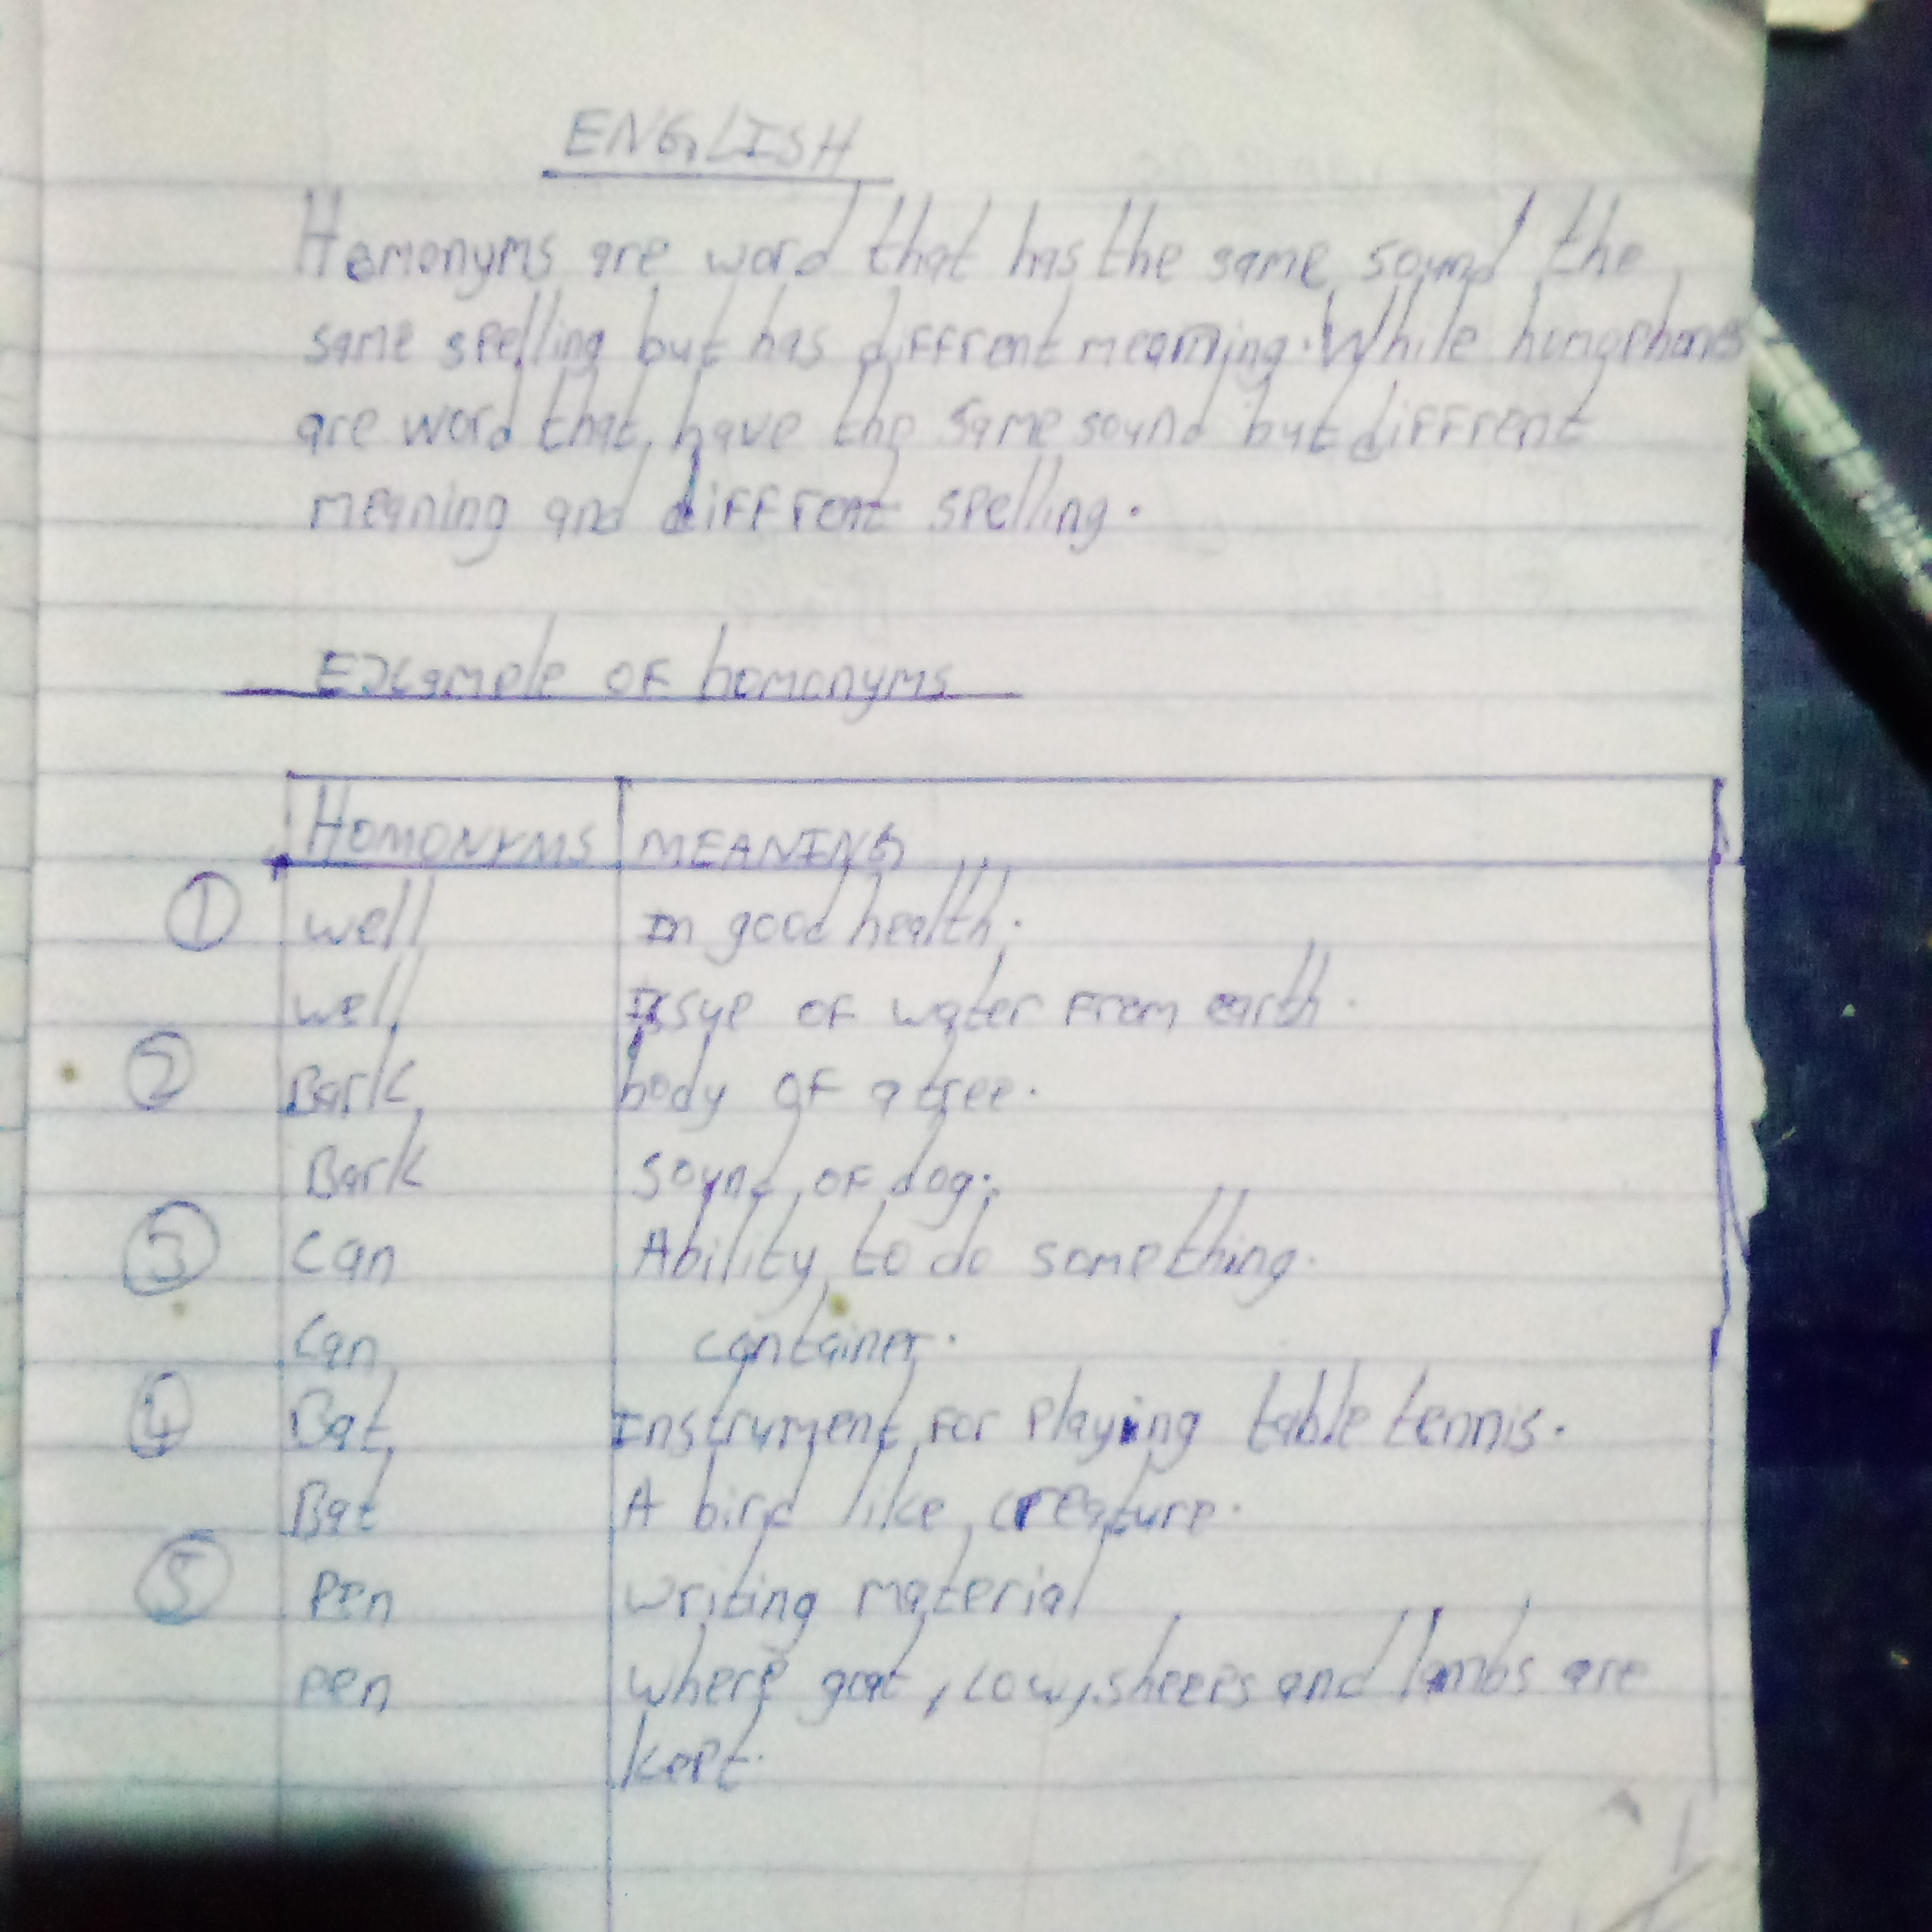 ENGLISH
Homonyms are word that has the same sound the
same spelling but has diffrent meaning. While homophones
are word that have the same sound but diffrent
meaning and diffrent spelling.
Example of homonyms
HOMONYMS MEANING
1 well In good health.
well Issue of water from earth.
2 Bark body of a tree.
Bark sound of dog.
3 Can Ability to do something.
Can container.
4 Bat Instrument for playing table tennis.
Bat A bird like creature.
5 Pen writing material
pen where goat, cow, sheeps and lambs are
kept.